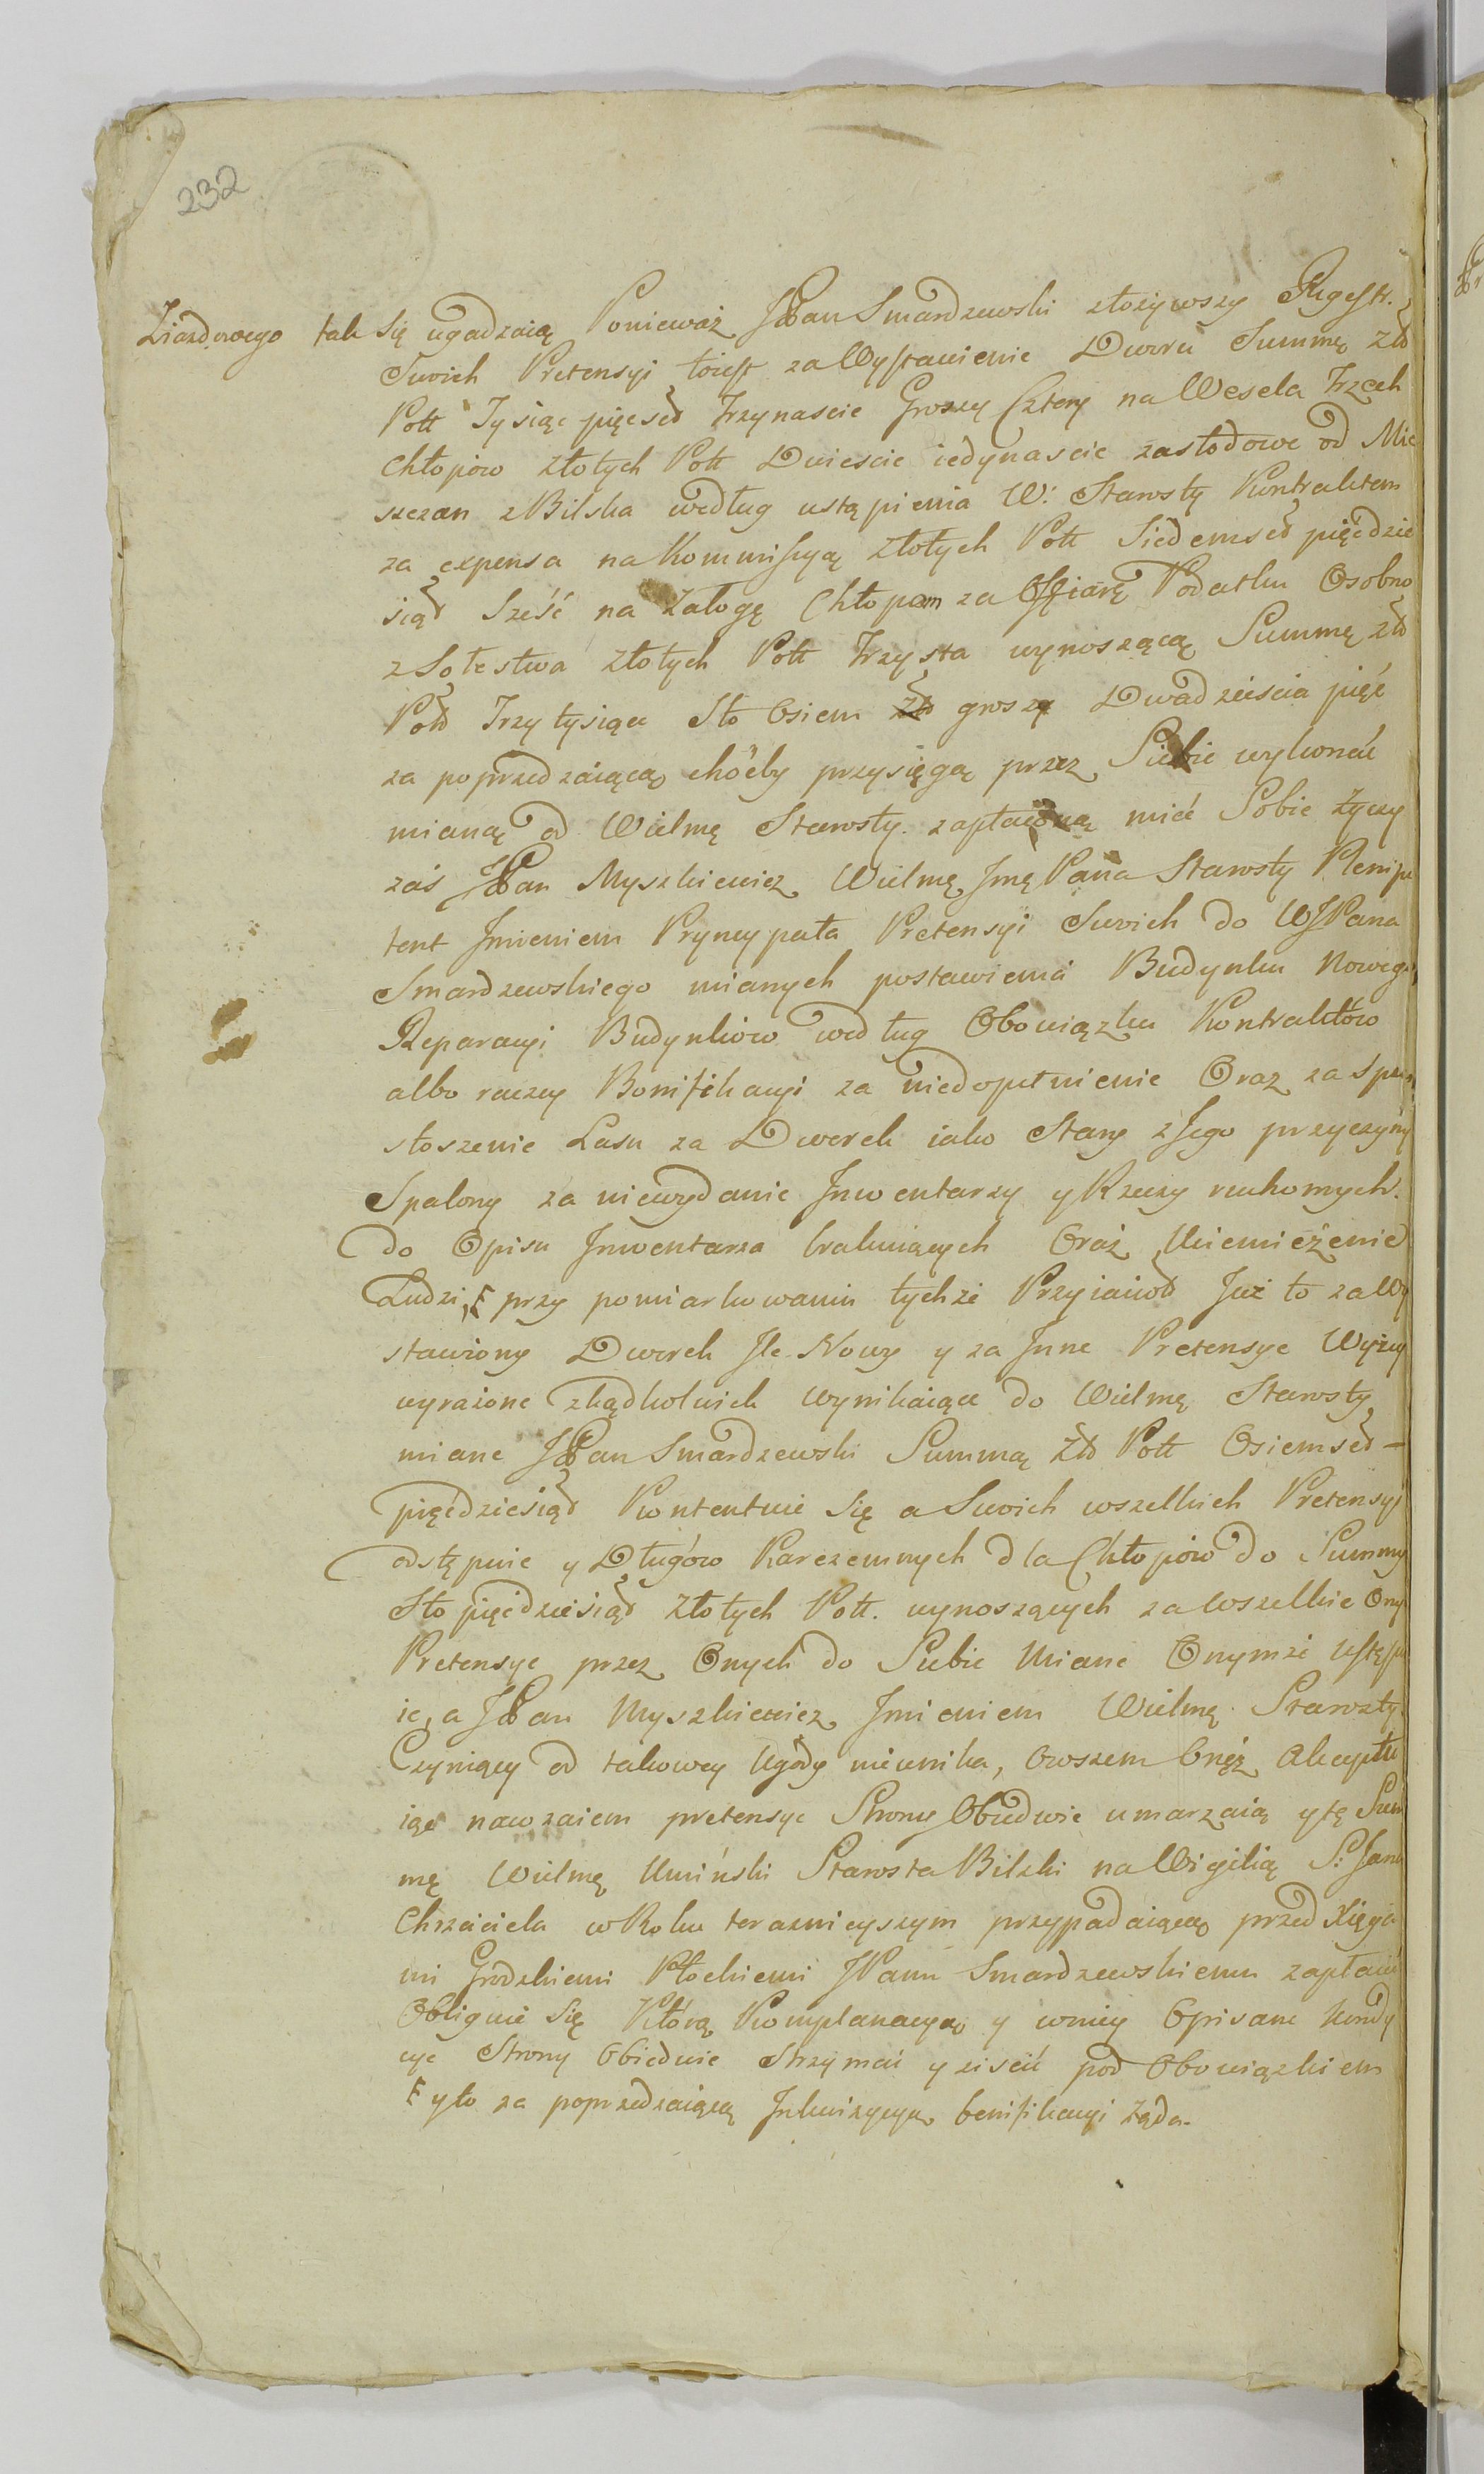 232
Ziazdowego tak Się ugadzaią Ponieważ JPan Smardzewski złożywszy Regestr.
Swoich Pretensyi toiest za Wystawienie Dworu Summę Zło
Poll Tysiąc pięcset Trzynascie Groszy Cztery na Wesela Trzech
Chłopów złotych Poll Dwiescie iedynascie zasłodowe od Mie
szczan z Bilska według ustąpienia W: Starosty Kontraktem
za expensa na Kommissyą Złotych Poll Siedemset pięćdzie
siąt Sześć na Załogę Chłopom za Offiarę Podatku Osobno
z Sołestwa złotych Poll Trzysta wynoszącą Summę zło
Pol Trzy tysiące Sto Osiem groszy Dwadziescia pięć
za poprzedzaiącą choćby przysięgą przez Siebie wykonać
mianą od Wielmę Starosty zapłaconą mieć Sobie życzy
zaś JPan Myszkiewicz Wielmę Jmę Pana Starosty Plenipo
tent Jmieniem Pryncypała Pretensyi Swoich do WJPana
Smardzewskiego mianych postawienia Budynku Nowego
Reparacyi Budynków według Obowiązku Kontraktów
albo raczey Bonifikacyi za niedopełnienie Oraz za Spu
stoszenie Lasu za Dworek iako Stary z Jego przyczyny
Spalony za niewydanie Jnwentarzy y Rzeczy ruchomych
do Opisu Jnwentarza brakuiących Oraz Uciemiężenie
Ludzi, przy pomiarkowaniu tychże Przyiaciół Już to za Wy
stawiony Dworek Jle Nowy y za Jnne Pretensye Wyżey
wyrażone zkądkolwiek wynikaiące do Wielmę Starosty
miane JPan Smardzewski Summą Zło Poll Osiemset –
pięćdziesiąt Kontentuie Się a Swoich wszelkich Pretensyi
odstępuie y Długów Karczemnych dla Chłopów do Summy
Sto pięćdziesiąt Złotych Poll. wynoszących za wszelkie Ony
Pretensye przez Onych do Siebie Miane Onymże ustępu
ie, a JPan Myszkiewicz Jmieniem Wielmę Starosty
Czyniący od takowey Ugody nieunika, Owszem Onęż Akceptu
iąc nawzaiem pretensye Strony Obiedwie umarzaią y tę Sum
mę Wielmę Umiński Starosta Bilski na Wigilią S: Jana
Chrzciciela w Roku teraznieyszym przypadaiącą przed Xięga
mi Grodzkiemi Płockiemi JPanu Smardzewskiemu zapłacić
Obliguie Się Którą Komplanacyą y wniey Opisane Kondy
cye Strony Obiedwie Strzymać y ziscić pod Obowiązkiem
y to za poprzedzaiącą Jnkwizycyą benifikacyi Żąda.